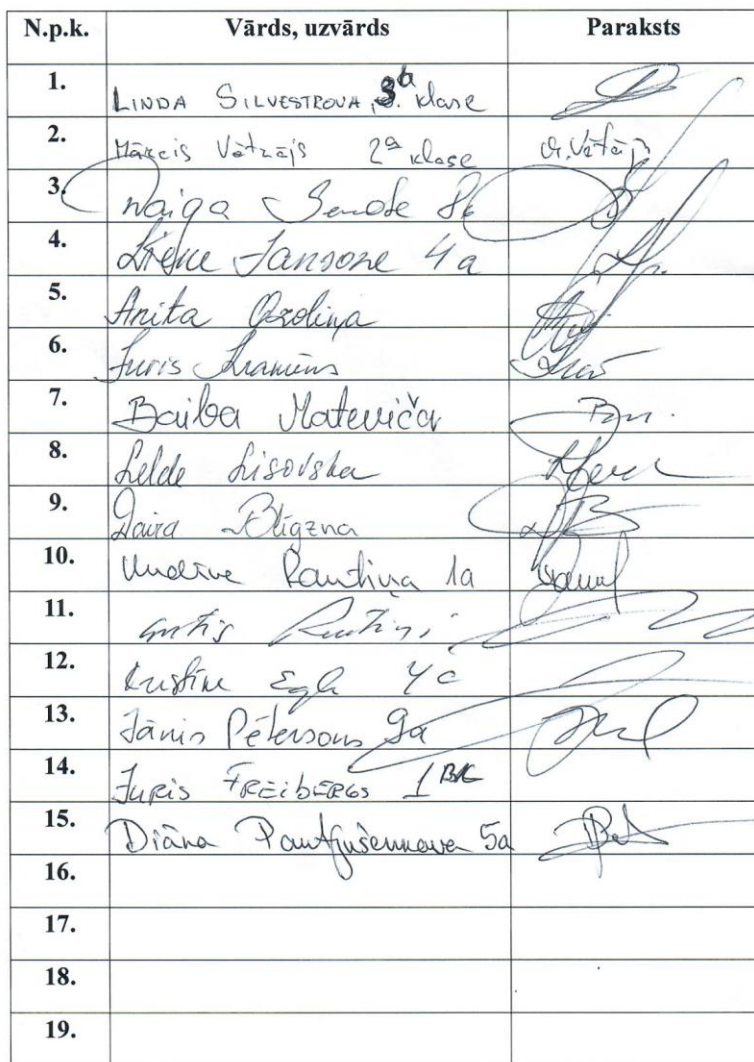 N.p.k. Vārds, uzvārds Paraksts
1. LINDA SILVESTROVA, 3.a klase
2. Mārcis Vētrājs 2a klase M. Vētrājs
3. Naiga 8c
4. Liene Jansone 4a
5. Anita Ozoliņa
6. Juris
7. Baiba Mateviča
8. Lelde Lisovska
9. Daira Blīgzna
10. Undīne Rautiņa 1a
11. Guntis Rautiņš
12. Kristīne Egle 4c
13. Jānis Pētersons 9a
14. JURIS FREIBERGS 1
15. Diāna 5a
16.
17.
18.
19.